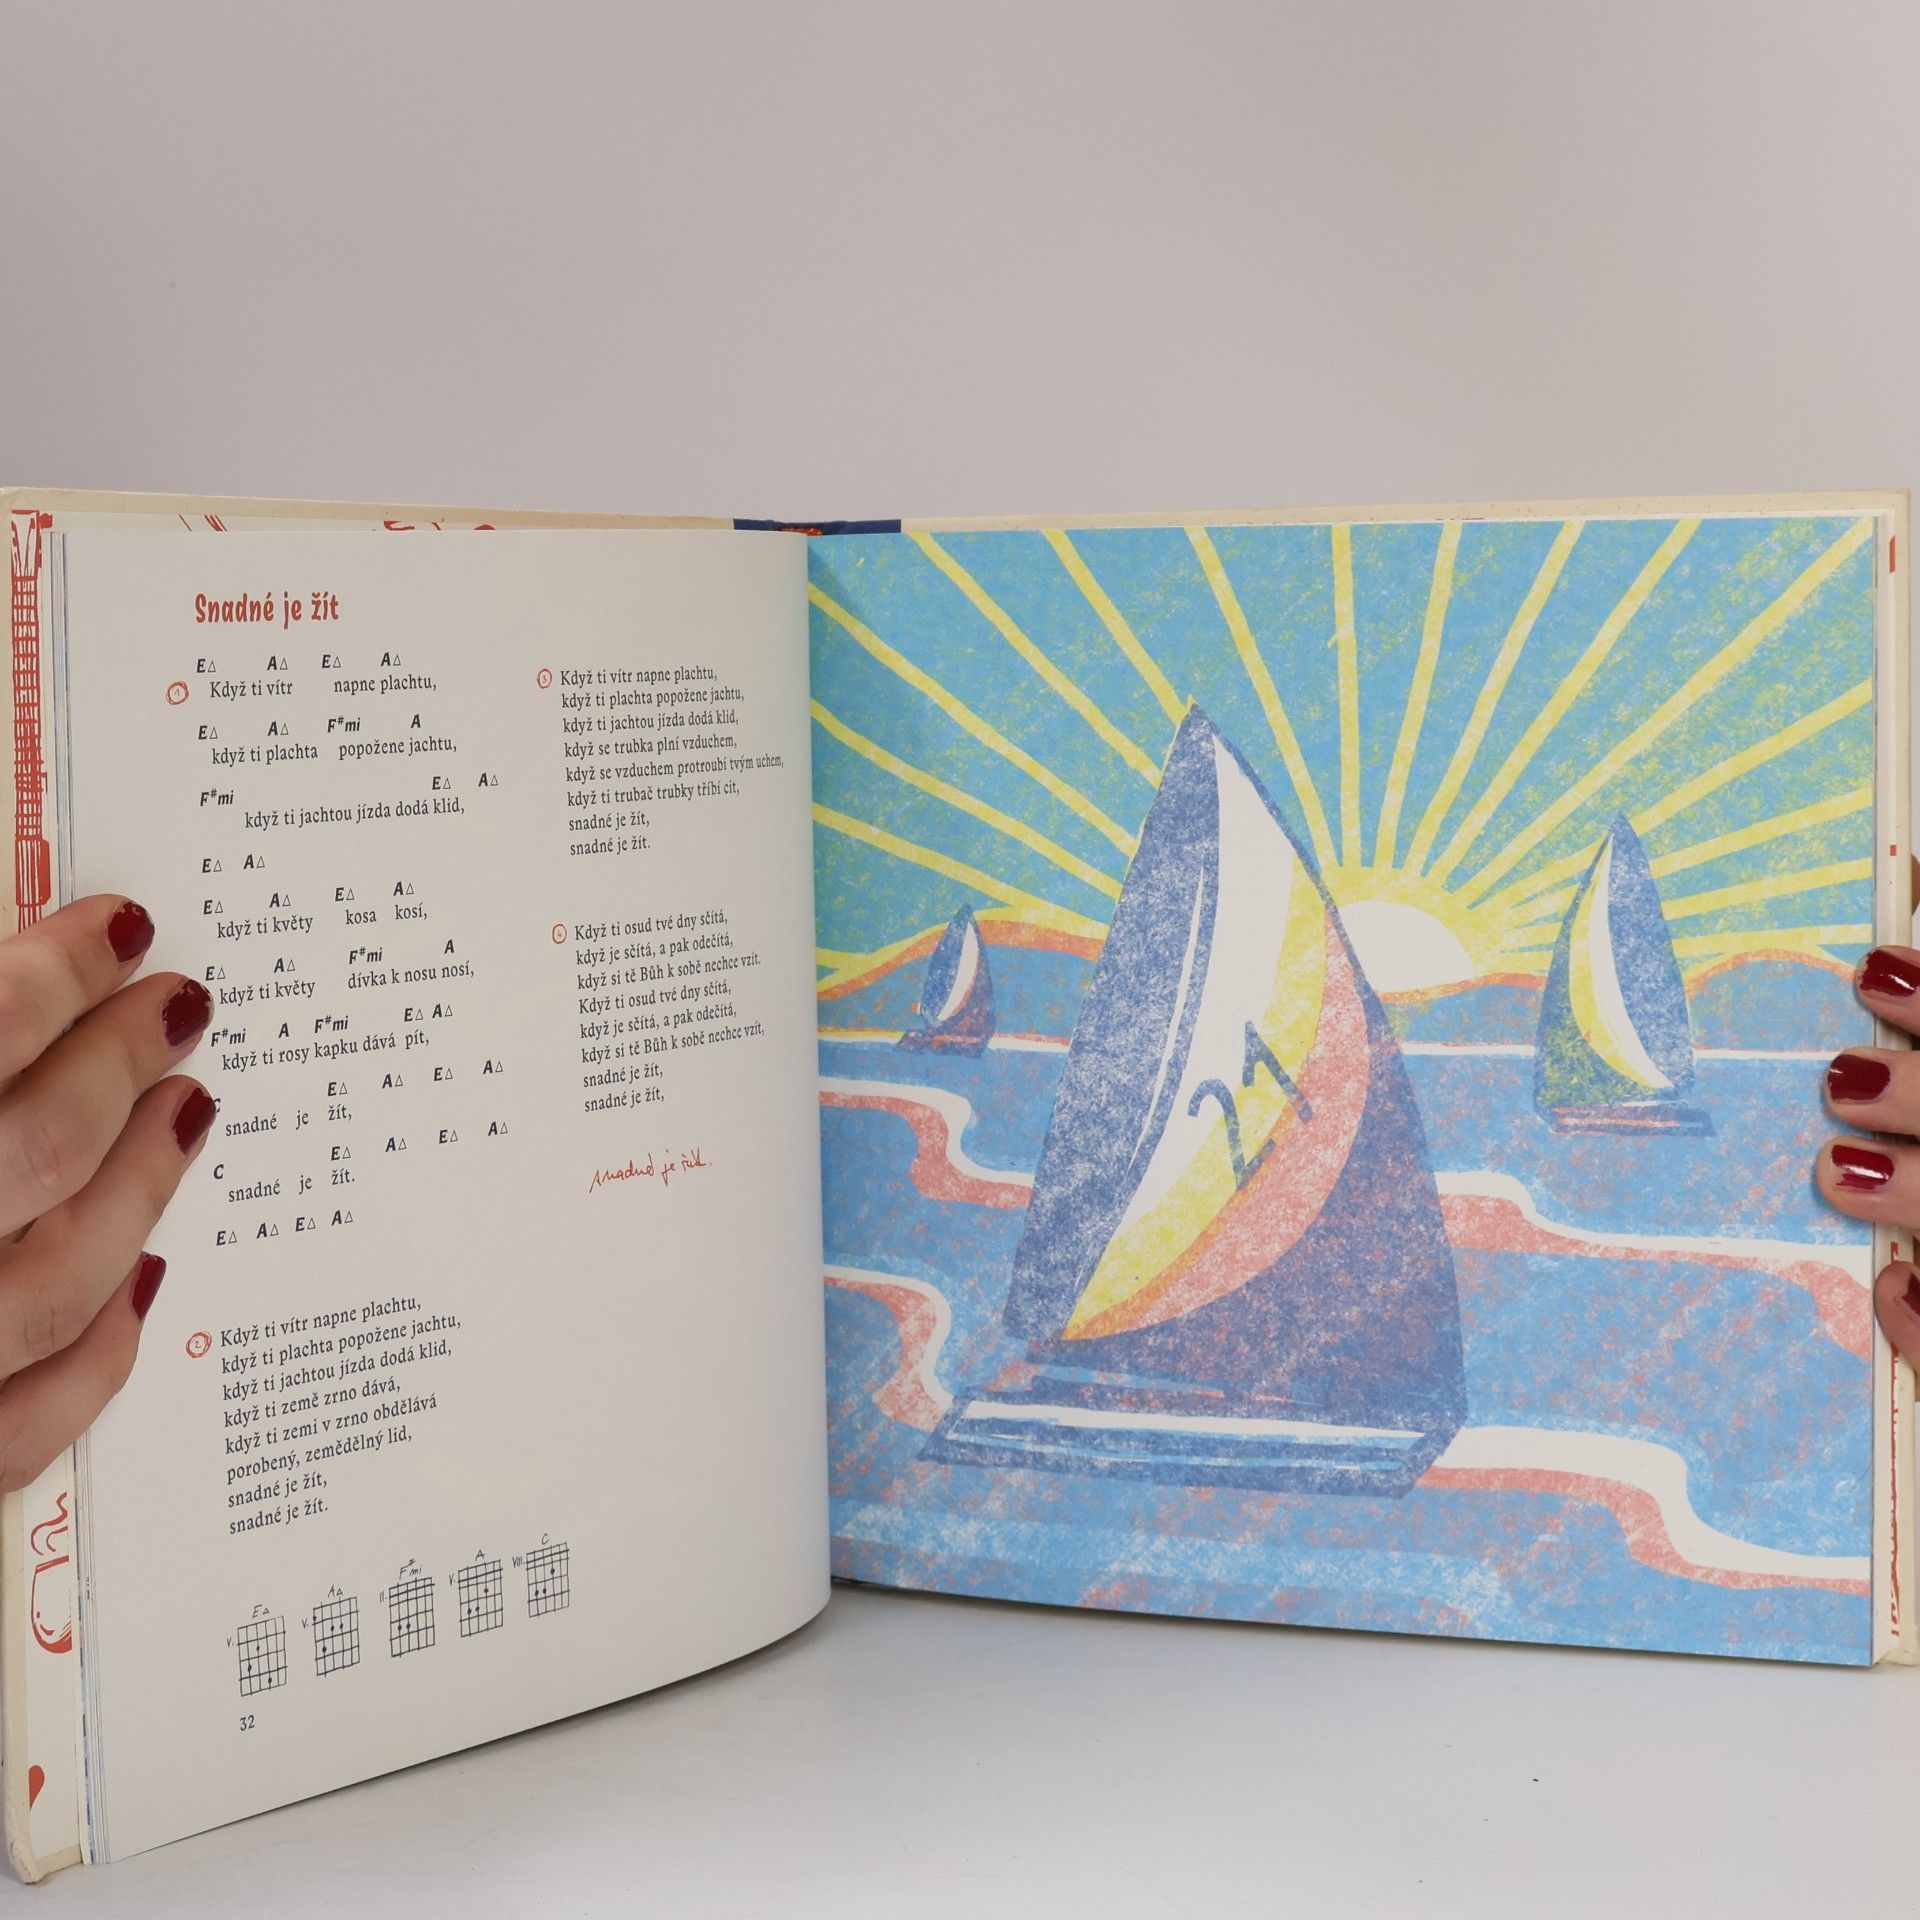 Snadné je žít
E△ A△ E△ A△
1 Když ti vítr napne plachtu,
E△ A△ F#mi A
když ti plachta popožene jachtu,
F#mi E△ A△
když ti jachtou jízda dodá klid,
E△ A△
E△ A△ E△ A△
když ti květy kosa kosí,
E△ A△ F#mi A
když ti květy dívka k nosu nosí,
F#mi A F#mi E△ A△
když ti rosy kapku dává pít,
C E△ A△ E△ A△
snadné je žít,
C E△ A△ E△ A△
snadné je žít.
E△ A△ E△ A△
2 Když ti vítr napne plachtu,
když ti plachta popožene jachtu,
když ti jachtou jízda dodá klid,
když ti země zrno dává,
když ti zemi v zrno obdělává
porobený, zemědělný lid,
snadné je žít,
snadné je žít.
E△ A△ F#mi A C
V. V. II. V. VIII.
32
3 Když ti vítr napne plachtu,
když ti plachta popožene jachtu,
když ti jachtou jízda dodá klid,
když se trubka plní vzduchem,
když se vzduchem protroubí tvým uchem,
když ti trubač trubky tříbí cit,
snadné je žít,
snadné je žít.
4 Když ti osud tvé dny sčítá,
když je sčítá, a pak odečítá,
když si tě Bůh k sobě nechce vzít.
Když ti osud tvé dny sčítá,
když je sčítá, a pak odečítá,
když si tě Bůh k sobě nechce vzít,
snadné je žít,
snadné je žít,
snadné je žít.
21